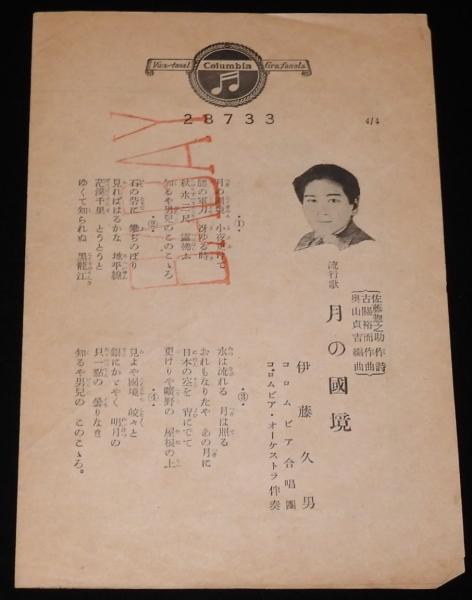 Viva-tonal Columbia Grafonola
28733
4/4
BALDAY
佐藤惣之助 作詩
古關裕而 作曲
奥山貞吉 編曲
流行歌
月の國境
伊藤久男
コロムビア合唱團
コロムビア・オーケストラ伴奏
①
小夜
腰の軍刀 冴ゆる時
秋水三尺
知るや男兒の このこゝろ
②
石の砦に 攀ぢのぼり
見ればはるかな 地平線
茫漠千里 とうとうと
ゆくて知られぬ 黑龍江
③
水は流れる 月は照る
おれもなりたや あの月に
日本の空を 宵にでて
更けりや曠野の 屋根の上
④
見よや國境 皎々と
銀にかゞやく 明月の
只一點の 曇りなき
知るや男兒の このこゝろ。